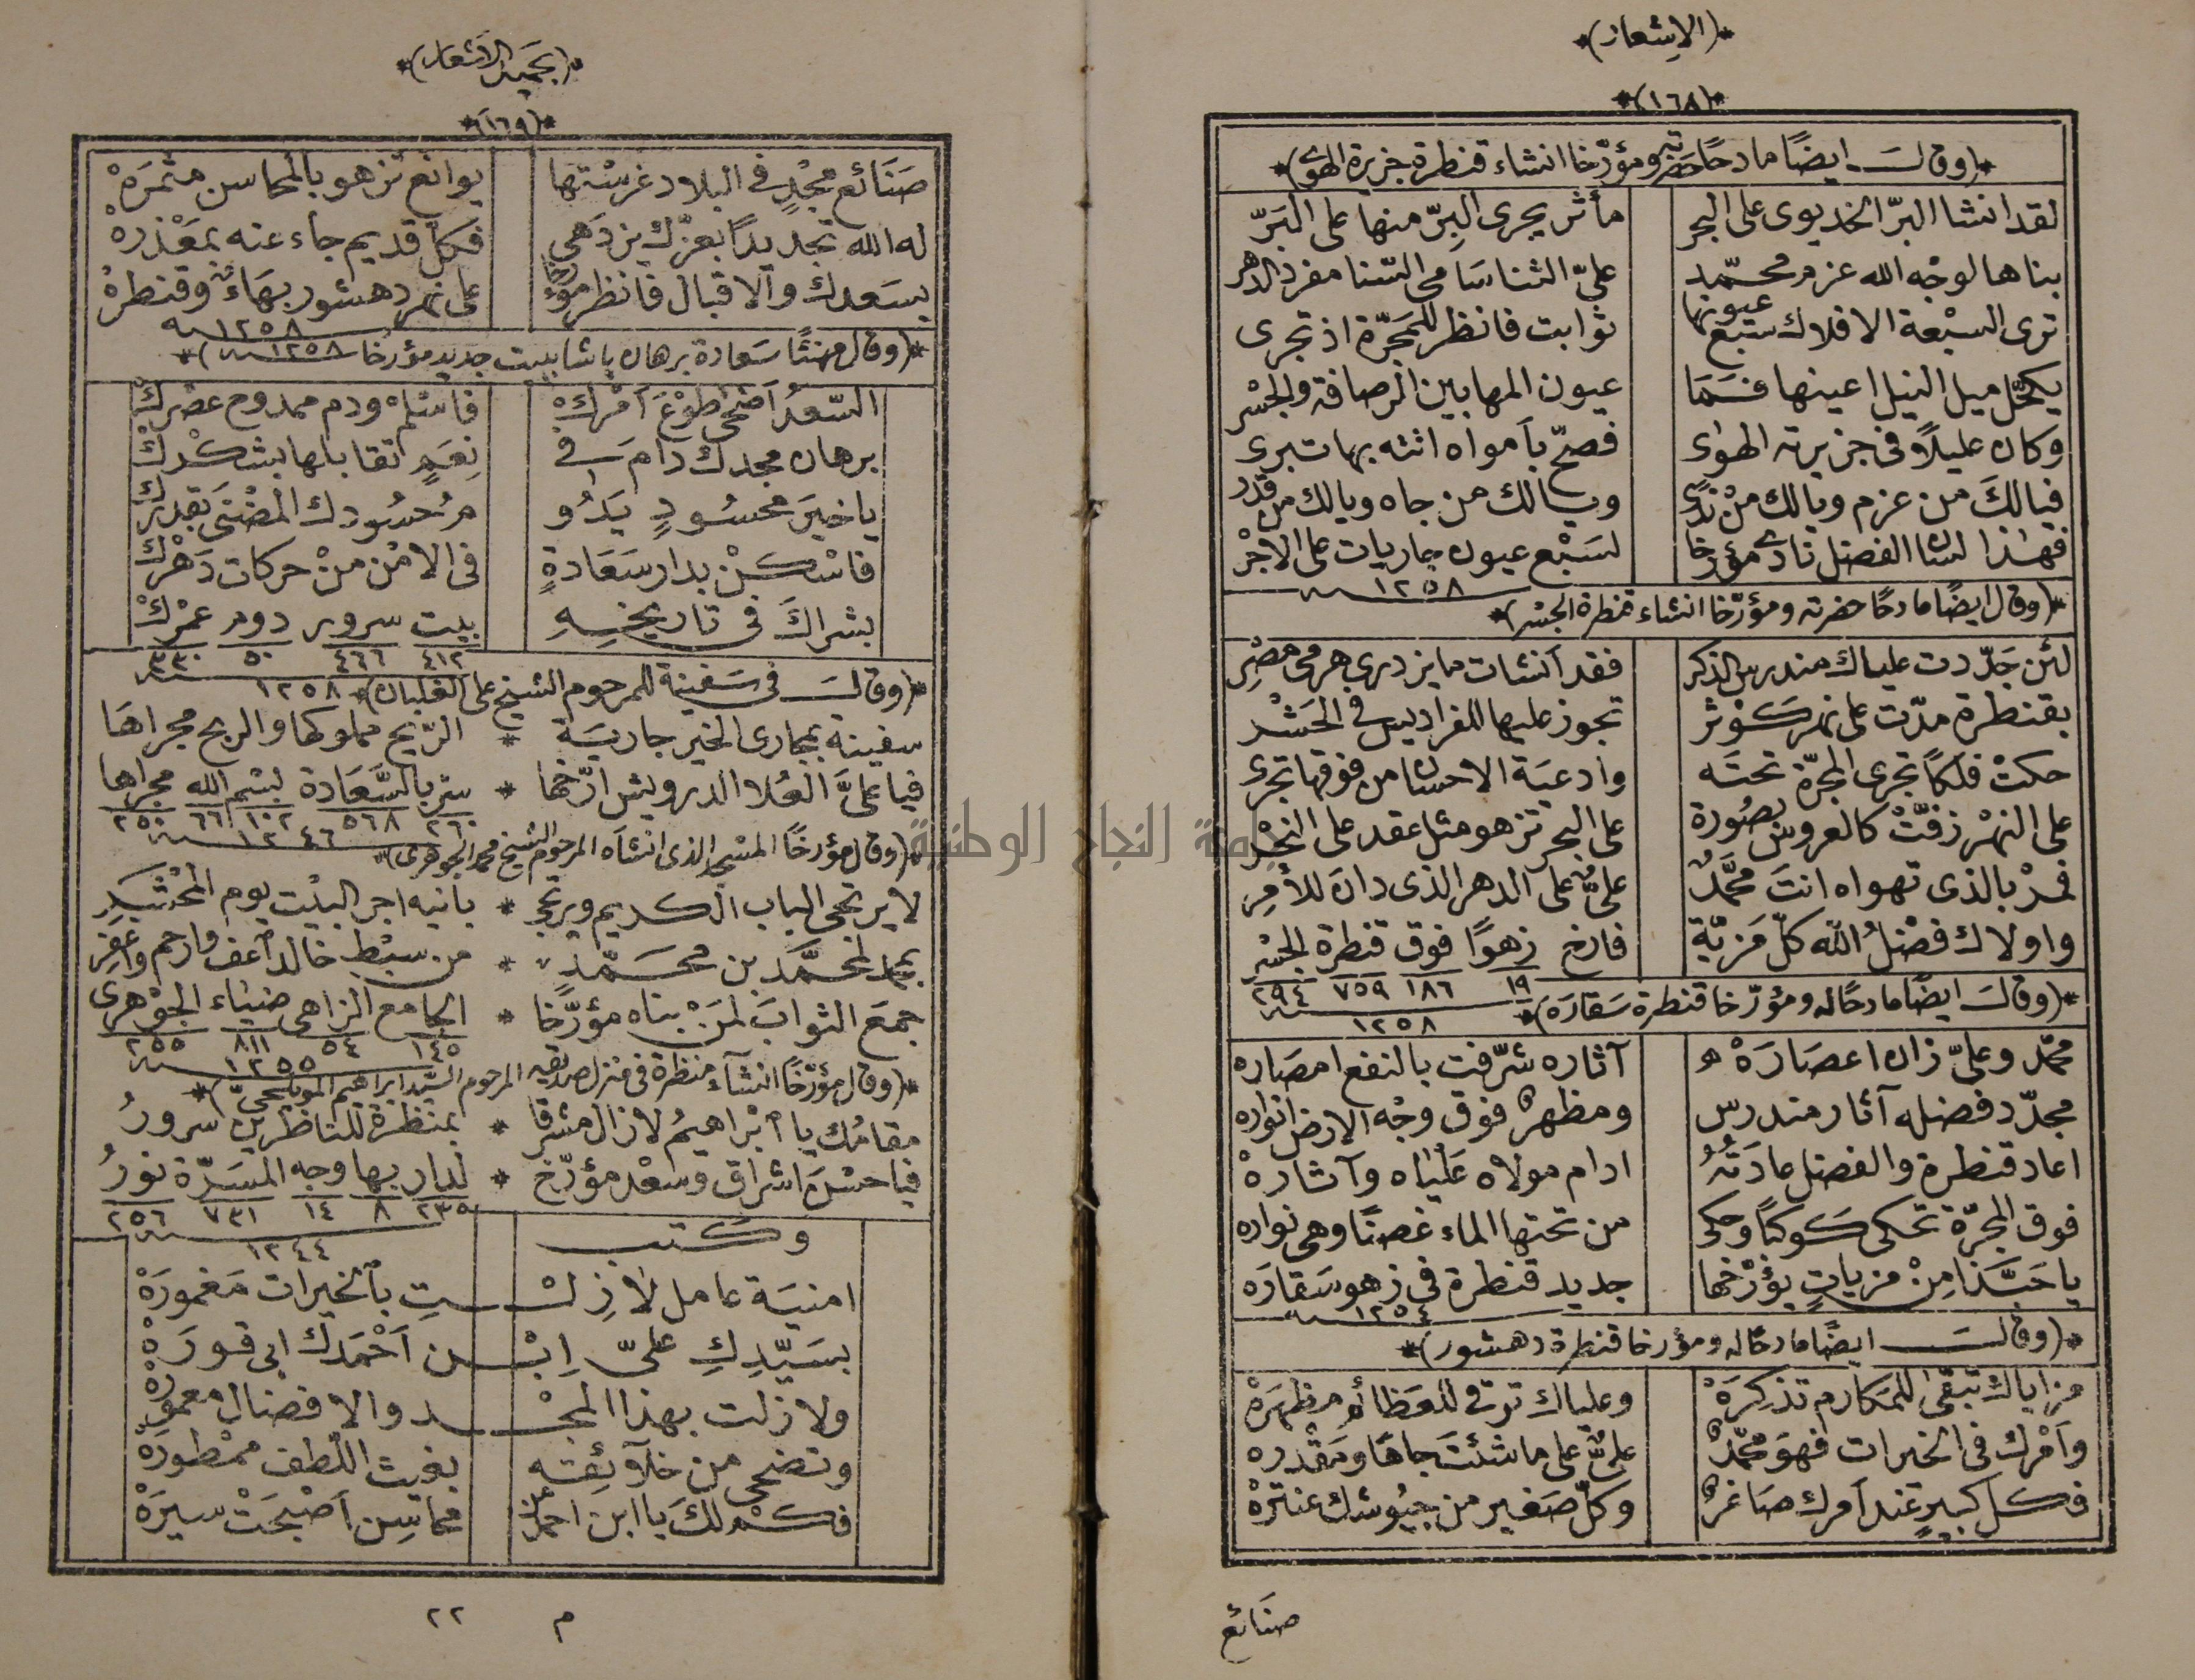 *(الاشعار)*
*(١٦٨)*
*(وقال ايضًا مادحًا حضرته ومؤرّخا انشاء قنطرة جزيرة الهوى)*
لقد انشا البرّ الخديوى على البحر مأثر يجرى البِرّ منها على البَرّ
بناها لوجْه الله عزم محمّد علىّ الثنا سَامى السّنا مفرد الدهر
ترى السبْعة الافلاك سبْع عيونها ثوابت فانظر للمَجَرّة اذ تجرى
يكحّل ميل النيل اعينها فسَمَا عيون المها بين الرصافة والجسْر
وكان عليلًا فى جزيرته الهوٰى فصحّ بأمواه اتته بها تبرى
فيالكَ من عزم ويالك منْ ندًى ويالك من جاه ويالك من قدر
فهٰذا لسَان الفضل نادى مؤرخا لسَبْع عيون جاريات على الاجْر
١٢٥٨
*(وقال ايضًا مادحًا حضرته ومؤرّخا انشاء قنطرة الجسْر)*
لئن جَدّدت علياك مندرس الذكر فقد أنشات ما يزدرى هرمى مصْرِ
بقنطرة مدّت على نهر كوْثر تجوز عليها للفراديس فى الحَشْر
حكتْ فلكًا تجرى المجرّة تحتَه وادعيَة الاحسان من فوقها تجرى
على النهْر زفّتْ كالعروس بصُورة على البحر تزهو مثل عقد على النحْر
فمرْ بالذى تهواه انتَ محمَّدٌ علىٌّ على الدهر الذى دان للأمرِ
واولاك فضْلُ الله كلّ مَزيّة فارخ زهوًا فوق قنطرة الجسْر
١٩ ١٨٦ ٧٥٩ ٢٩٤
١٢٥٨
*(وقال ايضًا مادحًا له ومؤرّخا قنطرة سَقارَة)*
محمّد وعلىّ زان اعصَارَهْ آثاره شرّفت بالنفع امصَاره
مجدّد فضله آثار مندرس ومظهرٌ فوق وجْه الارض انواره
اعاد قنطرة والفضل عادَتُهُ ادام مولاه عَلْيٰاه وآثارهْ
فوق المجرّة تحكى كوكبًا وحكى من تحتها الماء غصنًا وهى نواره
يا حَبَّذا مِنْ مزياتٍ يؤرّخها جديد قنطرة فى زهو سَقارَه
١٢٥٤
*(وقال ايضًا مادحًا له ومؤرخا قنطرة دهشور)*
مزاياك تبقى للمَكارم تذكِرَهْ وعلياك ترقى للعَظائم مظهَرَهْ
وَأمْرك فى الخيرات فهوَ محمّدٌ علىٌّ على ما شئتَ جاهًا ومَقْدره
فكل كبيرٍ عند امرك صَاغرٌ وكلّ صَغير من جيُوشك عنترَهْ
صنَائع
*(بجميل الاشعار)*
*(١٦٩)*
صَنَائع مجْدٍ فى البلاد غرسْتها يوانع تزهو بالمحاسن مثمرَهْ
له الله تجديدًا بعزّك يزدَهى فكلّ قديم جاء عنه بمَعْذرهْ
بسَعدك والاقبال فانظر مؤرخا على نهر دهشور بهَاءٌ وقنطرهْ
١٢٥٨
*(وقال مهنئًا سَعادة برهان باشا ببيت جديد مؤرخا ١٢٥٨)*
السّعدُ اَضحىٰ طوْعَ اَمْرِكْ فاسْلم ودم ممدوح عصْركْ
برهان مجدك دامَ فى نِعَمٍ اتقابلها بشكْركْ
يا خيرَ محسُودٍ يَدُو مُ حسُودك المضْنَى بقدرِكْ
فاسْكنْ بدار سَعَادةٍ فى الامْن منْ حركات دَهْرِكْ
بشراكَ فى تاريخِهِ بيت سرور دوم عمْركْ
٤١٢ ٤٦٦ ٥٠ ٣٣٠
١٢٥٨
*(وقال فى سَفينة للمرحوم الشيخ على الغلبان)*
سفينة بمجارى الخير جاريَة * الرّيح مملوكها والربح مجراهَا
فيا علىَّ العُلا الدرويش ارّخها * سِرْ بالسَّعَادة بسْم الله مجراها
٢٦٠ ٥٦٨ ١٠٢ ٦٦ ٢٥٠
١٢٤٦
*(وقال مؤرخًا المسْجد الذى انشأه المرحوم الشيخ محمد الجوهرى)*
لا يرتجى الباب الكريم ويرتجى * بانيه اجر البيْت يوم المحْشَرِ
بمحمَّد بن محمّد * من سبْط خالد اعف وارحم واغفِر
جمعَ الثوابَ لمَنْ بناه مؤرّخا * الجامع الزاهى ضيَاء الجوْهرى
١٤٥ ٥٤ ٨١١ ٢٥٥
١٢٥٥
*(وقال مؤرّخًا انشآء منظرة فى منزل صديقه المرحوم السّيد ابراهيم المويلحىّ)*
مقامُك يا ابْراهيمُ لازال مشرقا * بمنظرة للناظرين سرورُ
فيا حسْنَ اشراق وسعْد مؤرّخ * لدار بها وجه المسَرّة نورُ
٢٣٥ ٨ ١٤ ٧٣١ ٢٥٦
١٢٤٤
وكتب
امنيَة عامل لازِلْتِ بالخيرات مَغمورَهْ
بسَيّدِكِ علىّ اِبْن اَحْمَدْ ابى قورَهْ
ولا زلت بهذا المجْد والافضال معمورَهْ
وتضحى من خلآئقه بغيث اللّطف ممْطورَهْ
فكمْ لكَ يا ابن احمدَ مِن محاسِن اَصْبحَتْ سيرَهْ
م ٢٢
جامعة النجاح الوطنية